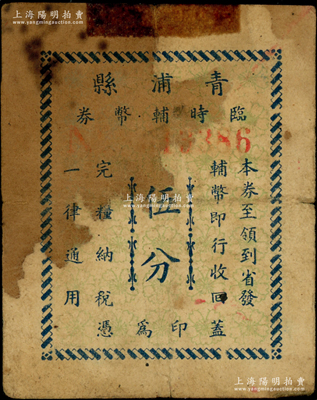 上海陽明拍賣
www.yangmingauction.com
縣浦青
券幣輔時臨
386
本券至領到省發
輔幣即行收回蓋
伍分
完糧納稅
一律通用
憑為印
上海陽明拍賣
www.yangmingauction.com